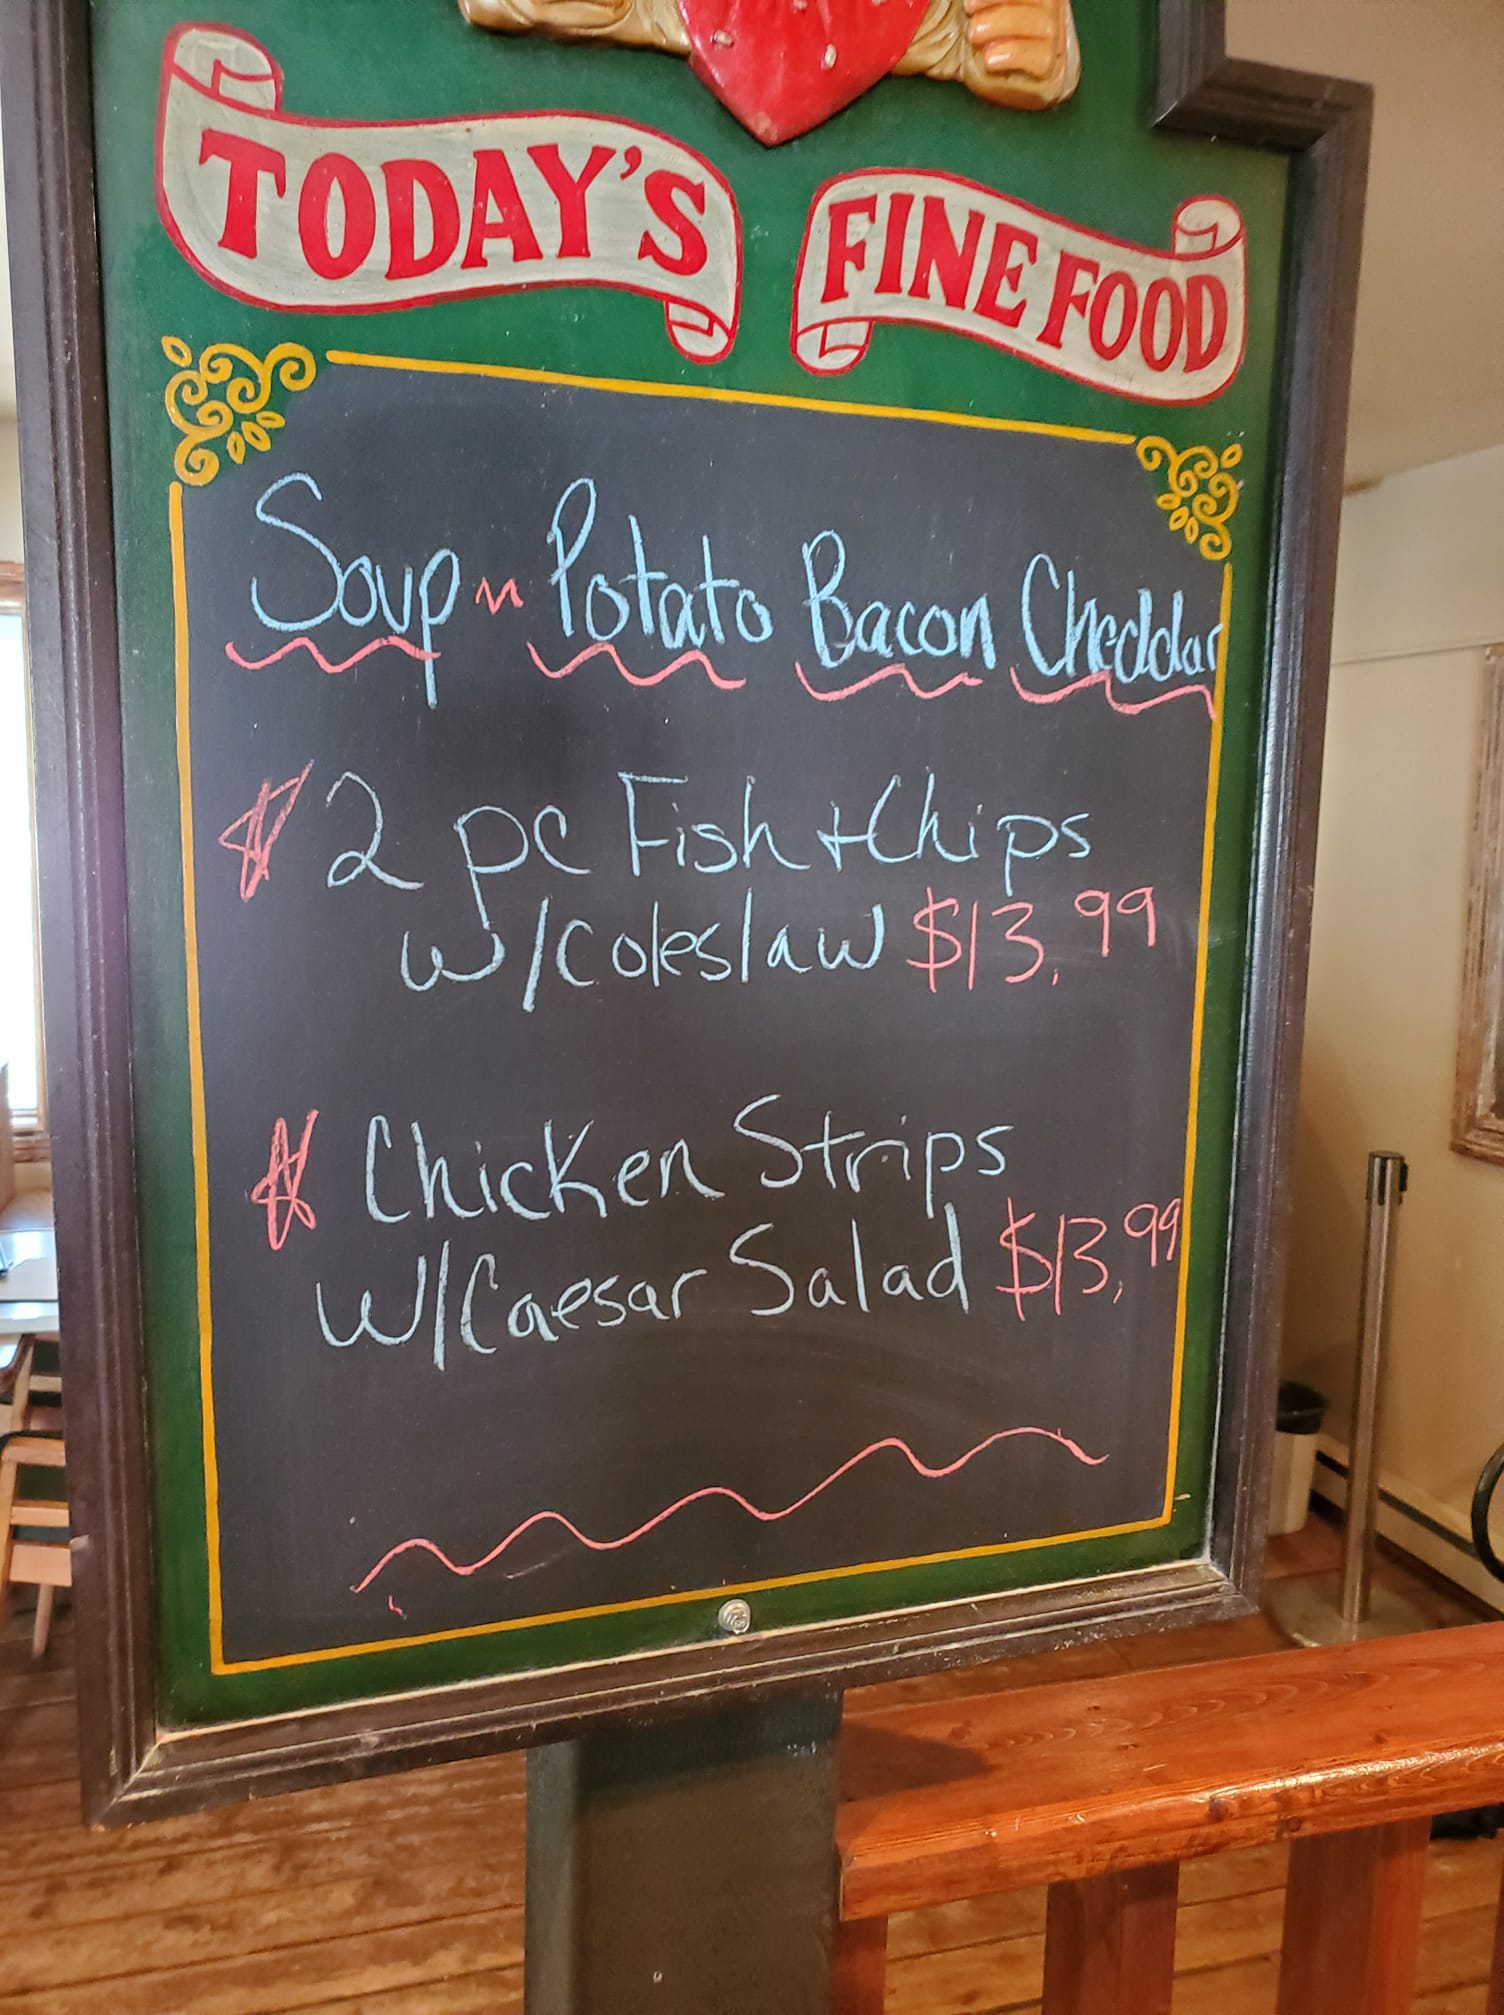 TODAY'S FINE FOOD
Soup ~ Potato Bacon Cheddar
2 pc Fish + Chips
w/coleslaw $13.99
Chicken Strips
w/Caesar Salad $13.99